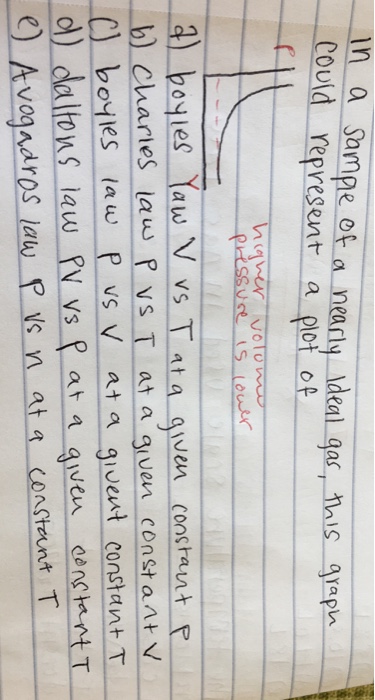 In a sample of a nearly ideal gas, this graph
could represent a plot of
P
higher volume
pressure is lower
a) boyles law V vs T at a given constant P
b) Charles law P vs T at a given constant V
c) boyles law P vs V at a givent constant T
d) daltons law PV vs P at a given constant T
e) Avogadros law P vs n at a constant T